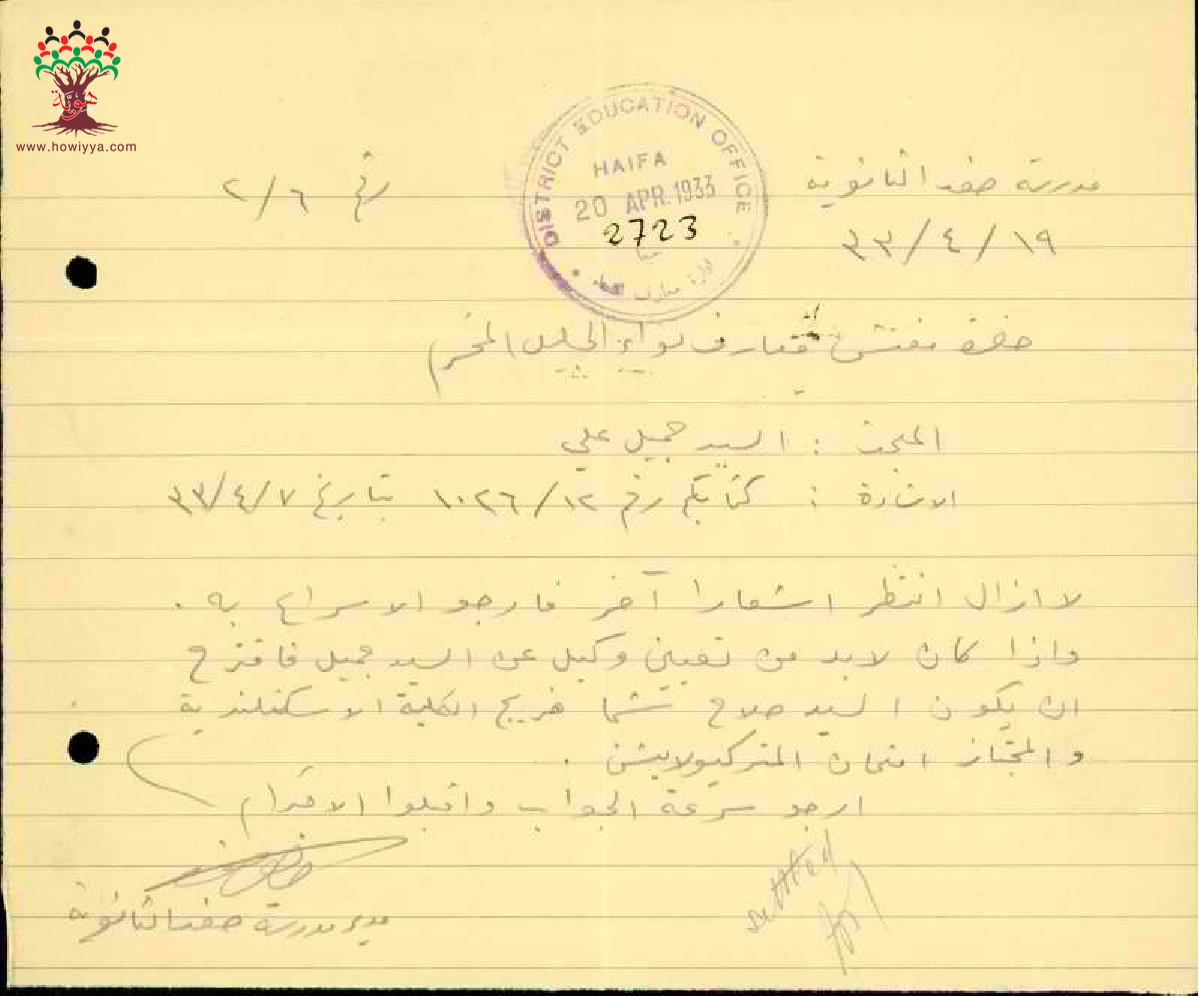 هوية
www.howiyya.com
DISTRICT EDUCATION OFFICE
HAIFA
20 APR. 1933
2723
حيفا
ادارة معارف
مدرسة صفد الثانوية
رقم ٢/٦
٣٣/٤/١٩
حضرة مفتش معارف لواء الجليل المحترم
المبحث : السيد جميل علي
الاشارة : كتابكم رقم ١٠٢٦/١٢ بتاريخ ٣٣/٤/٧
لا ازال انتظر اشعارا آخر فارجو الاسراع به .
واذا كان لابد من تعيين وكيل عن السيد جميل فاقترح
ان يكون السيد صلاح شما خريج الكلية الاسكتلندية
والمجتاز امتحان المتركيولايشن .
ارجو سرعة الجواب واقبلوا الاحترام
مدير مدرسة صفد الثانوية
settled